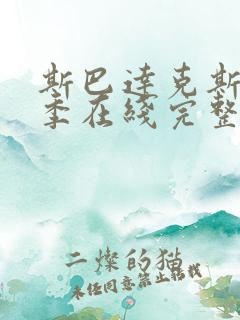 斯巴達克斯
季在綫完整
二燦的猫
未经同意禁止转载